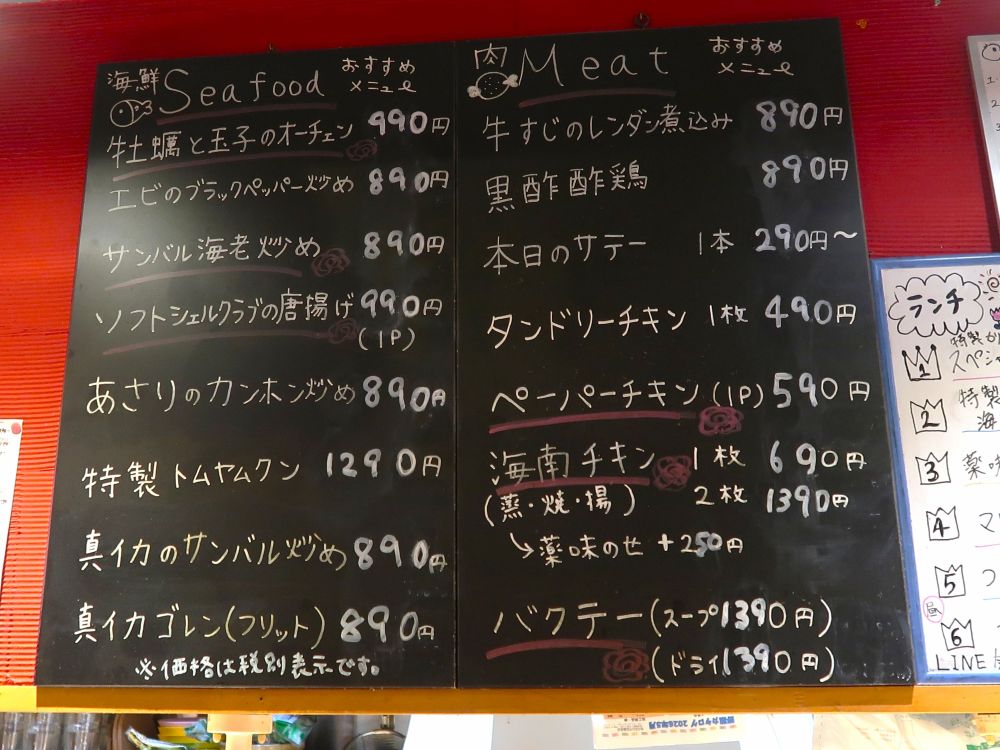 海鮮 Seafood おすすめ
メニュー
牡蠣と玉子のオーチェン 990円
エビのブラックペッパー炒め 890円
サンバル海老炒め 890円
ソフトシェルクラブの唐揚げ 990円
(1P)
あさりのカンホン炒め 890円
特製トムヤムクン 1290円
真イカのサンバル炒め 890円
真イカゴレン(フリット) 890円
※価格は税別表示です。
肉 Meat おすすめ
メニュー
牛すじのレンダン煮込み 890円
黒酢酢鶏 890円
本日のサテー 1本 290円〜
タンドリーチキン 1枚 490円
ペーパーチキン (1P) 590円
海南チキン 1枚 690円
(蒸・焼・揚) 2枚 1390円
↳薬味のせ +250円
バクテー (スープ1390円)
(ドライ1390円)
ランチ
1 スペシ
2 特製
海
3 薬味
4 マ
5
6
LINE